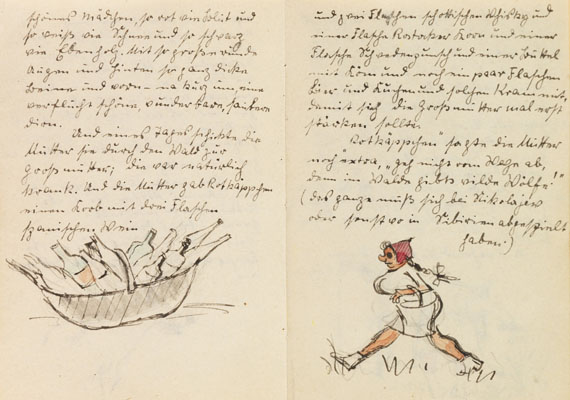 schönes Mädchen, so rot wie Blut und
so weiß wie Schnee und so schwarz
wie Ebenholz. Mit so große runde
Augen und hinten so ganz dicke
Beine und vorn – na kurz, eine
verflucht schöne, wunderbare, saubere
Dirn.
Und eines Tages schickte die
Mutter sie durch den Wald zur
Großmutter; die war natürlich
krank. Und die Mutter gab Rotkäppchen
einen Korb mit drei Flaschen
spanischen Wein
und zwei Flaschen schottischen Whisky und
einer Flasche Rostocker Korn und einer
Flasche Schwedenpunsch und einer Buttel
mit Köm und noch ein paar Flaschen
Bier und Kuchen und solchen Kram mit,
damit sich die Großmutter mal erst
stärken sollte.
„Rotkäppchen" sagte die Mutter
noch extra, „geh nicht vom Wege ab,
denn im Walde gibts wilde Wölfe!"
(das ganze muß sich bei Nikolajew
oder sonstwo in Sibirien abgespielt
haben.)